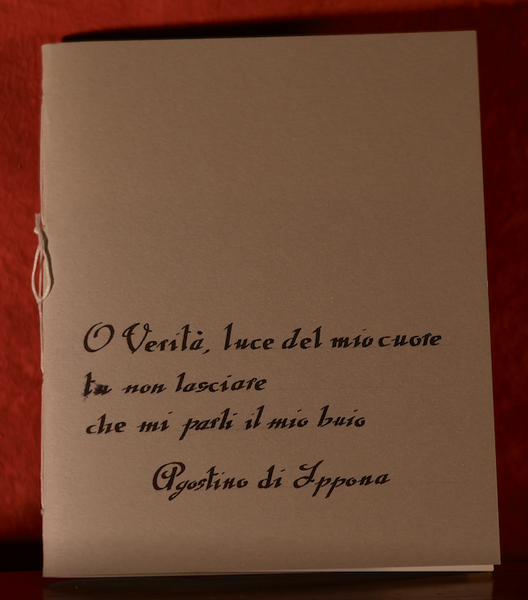 O Verità, luce del mio cuore
tu non lasciare
che mi parli il mio buio
Agostino di Ippona